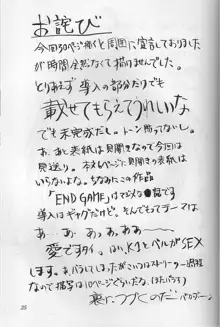 お詫び
今回50ページ描くと周囲に宣言しておりました
が時間が全然なくて描けませんでした。
とりあえず導入の部分だけでも
載せてもらえてうれしいな
でも未完成だもん。トーン貼ってないし。
あ、あと表紙は見開きなので今回は
見送り。本文1ページに見開きの表紙は
いらないよな。ちなみにこの作品
「END GAME」はマジメな話です
導入はギャグだけど。そんでもってテーマは
あ…あ…あ…あぁ〜
愛ですタイ。はい、K'とベルがSEX
します。あ、バラしてしまったがこいつはストーリーの一過程
なので描写は10ページぐらいだな。(またバラす)
裏につづくのだ
25